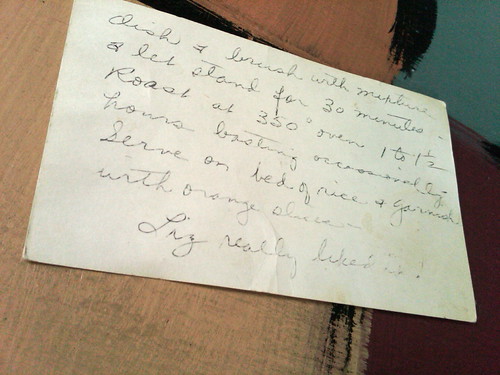 dish & brush with mixture
& let stand for 30 minutes -
Roast at 350° oven 1 to 1½
hours basting occasionally
Serve on bed of rice & garnish
with orange slices -
Liz really liked it!